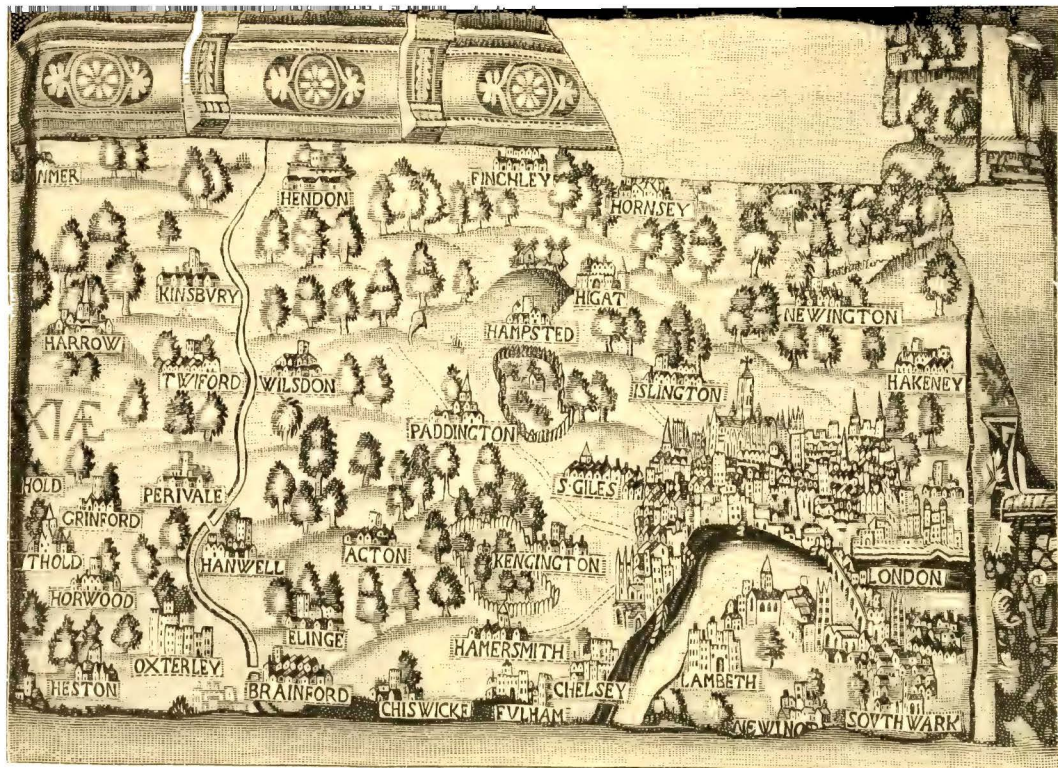 NMER
HENDON
FINCHLEY
HORNSEY
KINSBVRY
HIGAT
NEWINGTON
HAMPSTED
HARROW
TWIFORD
WILSDON
ISLINGTON
HAKENEY
XIÆ
PADDINGTON
HOLD
PERIVALE
S GILES
GRINFORD
THOLD
HANWELL
ACTON
KENCINGTON
LONDON
HORWOOD
ELINGE
HAMERSMITH
OXTERLEY
HESTON
BRAINFORD
CHELSEY
LAMBETH
CHISWICKE
FVLHAM
NEWINGT
SOVTHWARK